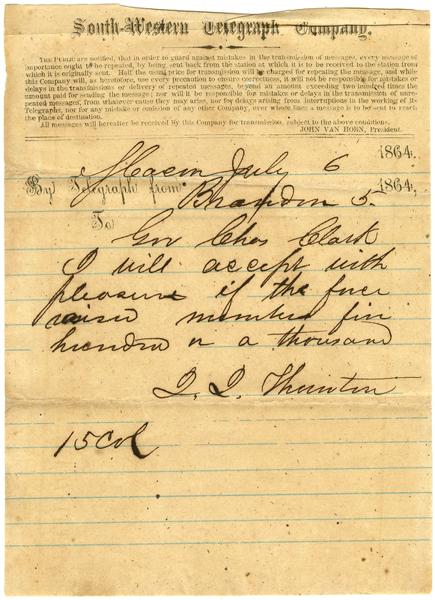 South-Western Telegraph Company.
THE PUBLIC are notified, that in order to guard against mistakes in the transmission of messages, every message of
importance ought to be repeated, by being sent back from the station at which it is to be received to the station from
which it is originally sent. Half the usual price for transmission will be charged for repeating the message, and while
this Company will, as heretofore, use every precaution to ensure correctness, it will not be responsible for mistakes or
delays in the transmission or delivery of repeated messages, beyond an amount exceeding two hundred times the
amount paid for sending the message; nor will it be responsible for mistakes or delays in the transmission of unre-
peated messages, from whatever cause they may arise, nor for delays arising from interruptions in the working of its
Telegraphs, nor for any mistake or omission of any other Company over whose lines a message is to be sent to reach
the place of destination.
All messages will hereafter be received by this Company for transmission, subject to the above conditions.
JOHN VAN HORN, President.
Macon July 6 1864.
By Telegraph from Brandon 5. 1864,
To
Gov Chas Clark
I will accept with
pleasure if the force
raised numbers five
hundred or a thousand
J. J. Thornton
15 Col